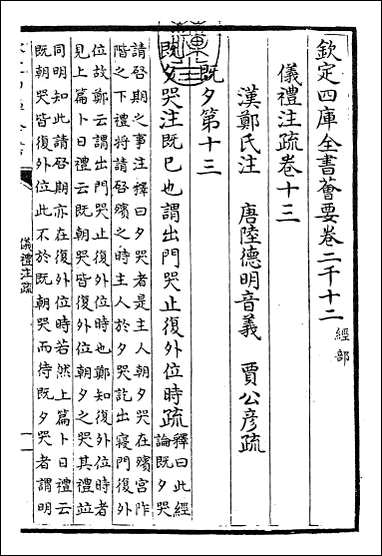 欽定四庫全書薈要卷二千十二 經部
儀禮注疏卷十三
漢鄭氏注 唐陸德明音義 賈公彥疏
既夕第十三
既夕哭注既已也謂出門哭止復外位時疏釋曰此經論既夕哭
請啓期之事注釋曰夕哭者是主人朝夕哭在殯宫阼
階之下禮將請啓殯之時主人於夕哭訖出寢門復外
位故鄭云謂出門哭止復外位時也鄭知復外位時者
見上篇卜日禮云既朝哭皆復外位朝夕之哭其禮竝
同明知此請啓期亦在復外位時若然上篇卜日禮云
既朝哭皆復外位此不於既朝哭而待既夕哭者謂明
儀禮注疏